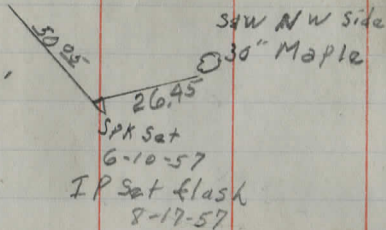 S&W NW Side
30" Maple
50.05
26.45
SPK Set
6-10-57
IP Set flash
8-17-57